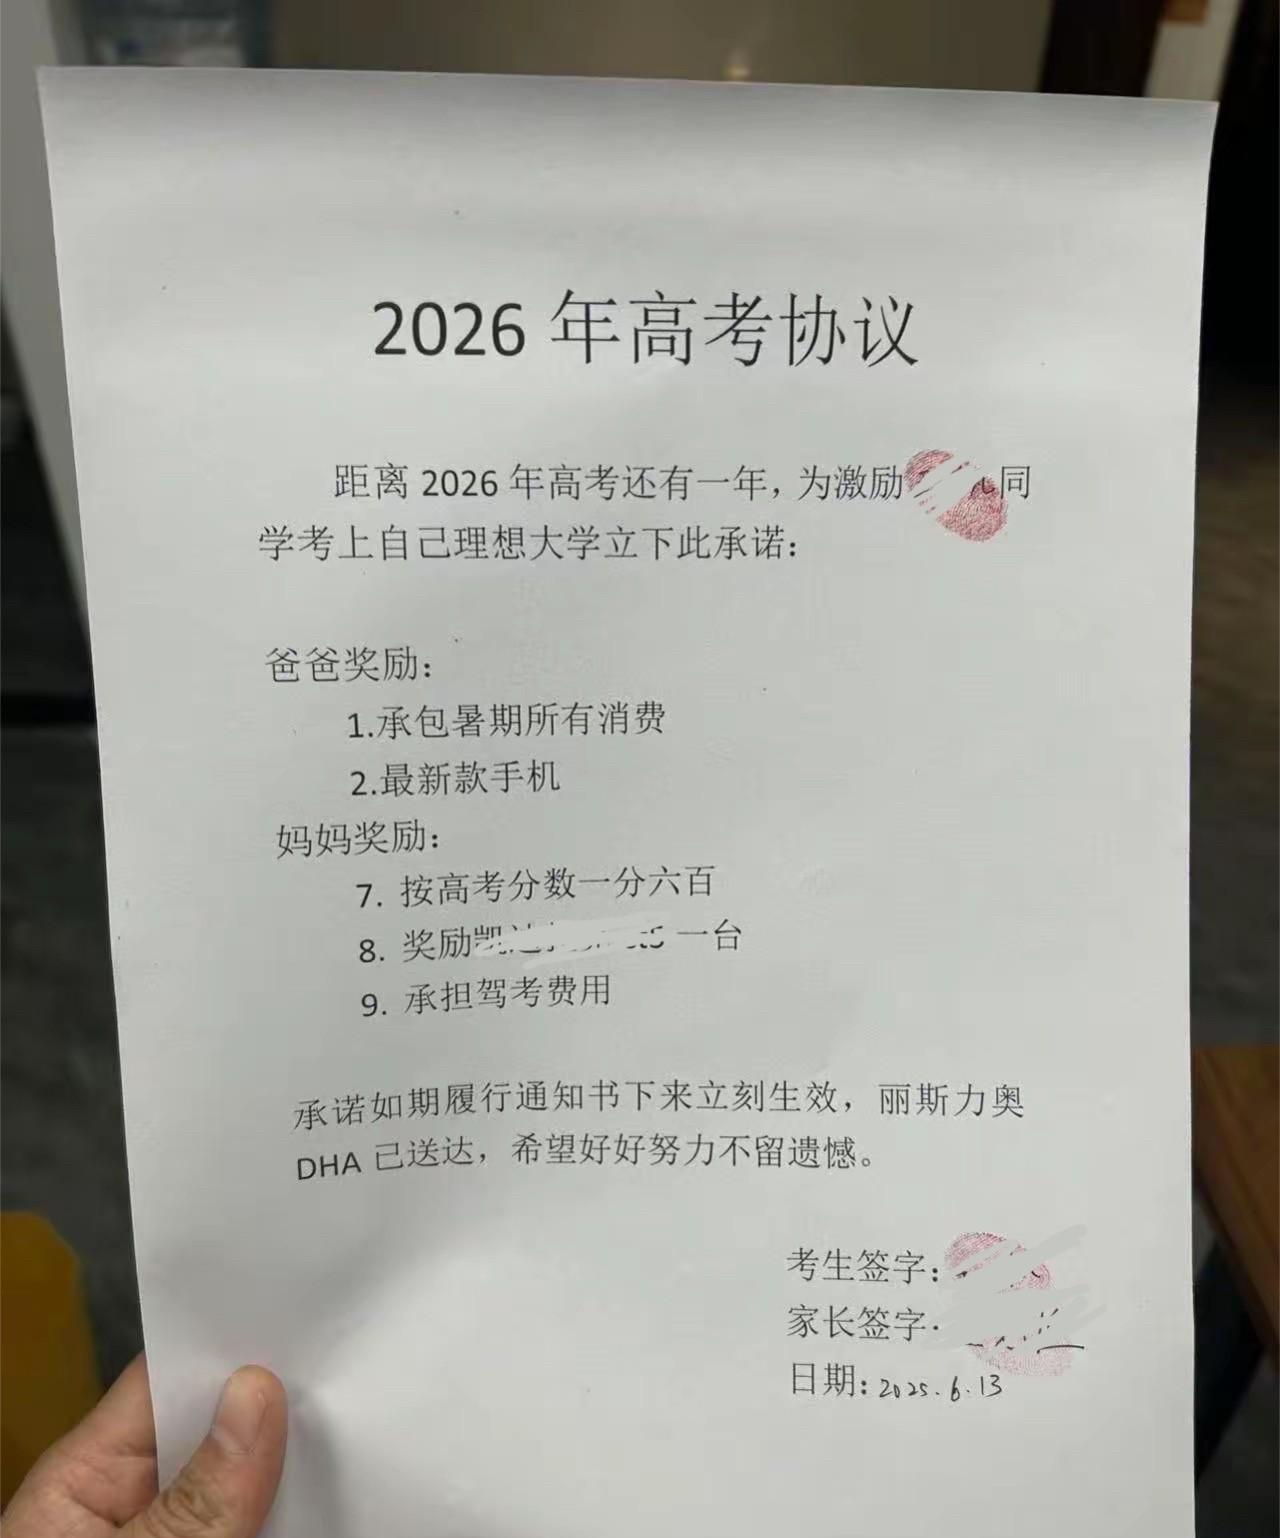 2026 年高考协议
距离 2026 年高考还有一年，为激励 同
学考上自己理想大学立下此承诺：
爸爸奖励：
1.承包暑期所有消费
2.最新款手机
妈妈奖励：
7. 按高考分数一分六百
8. 奖励凯 一台
9. 承担驾考费用
承诺如期履行通知书下来立刻生效，丽斯力奥
DHA 已送达，希望好好努力不留遗憾。
考生签字：
家长签字
日期：2025.6.13